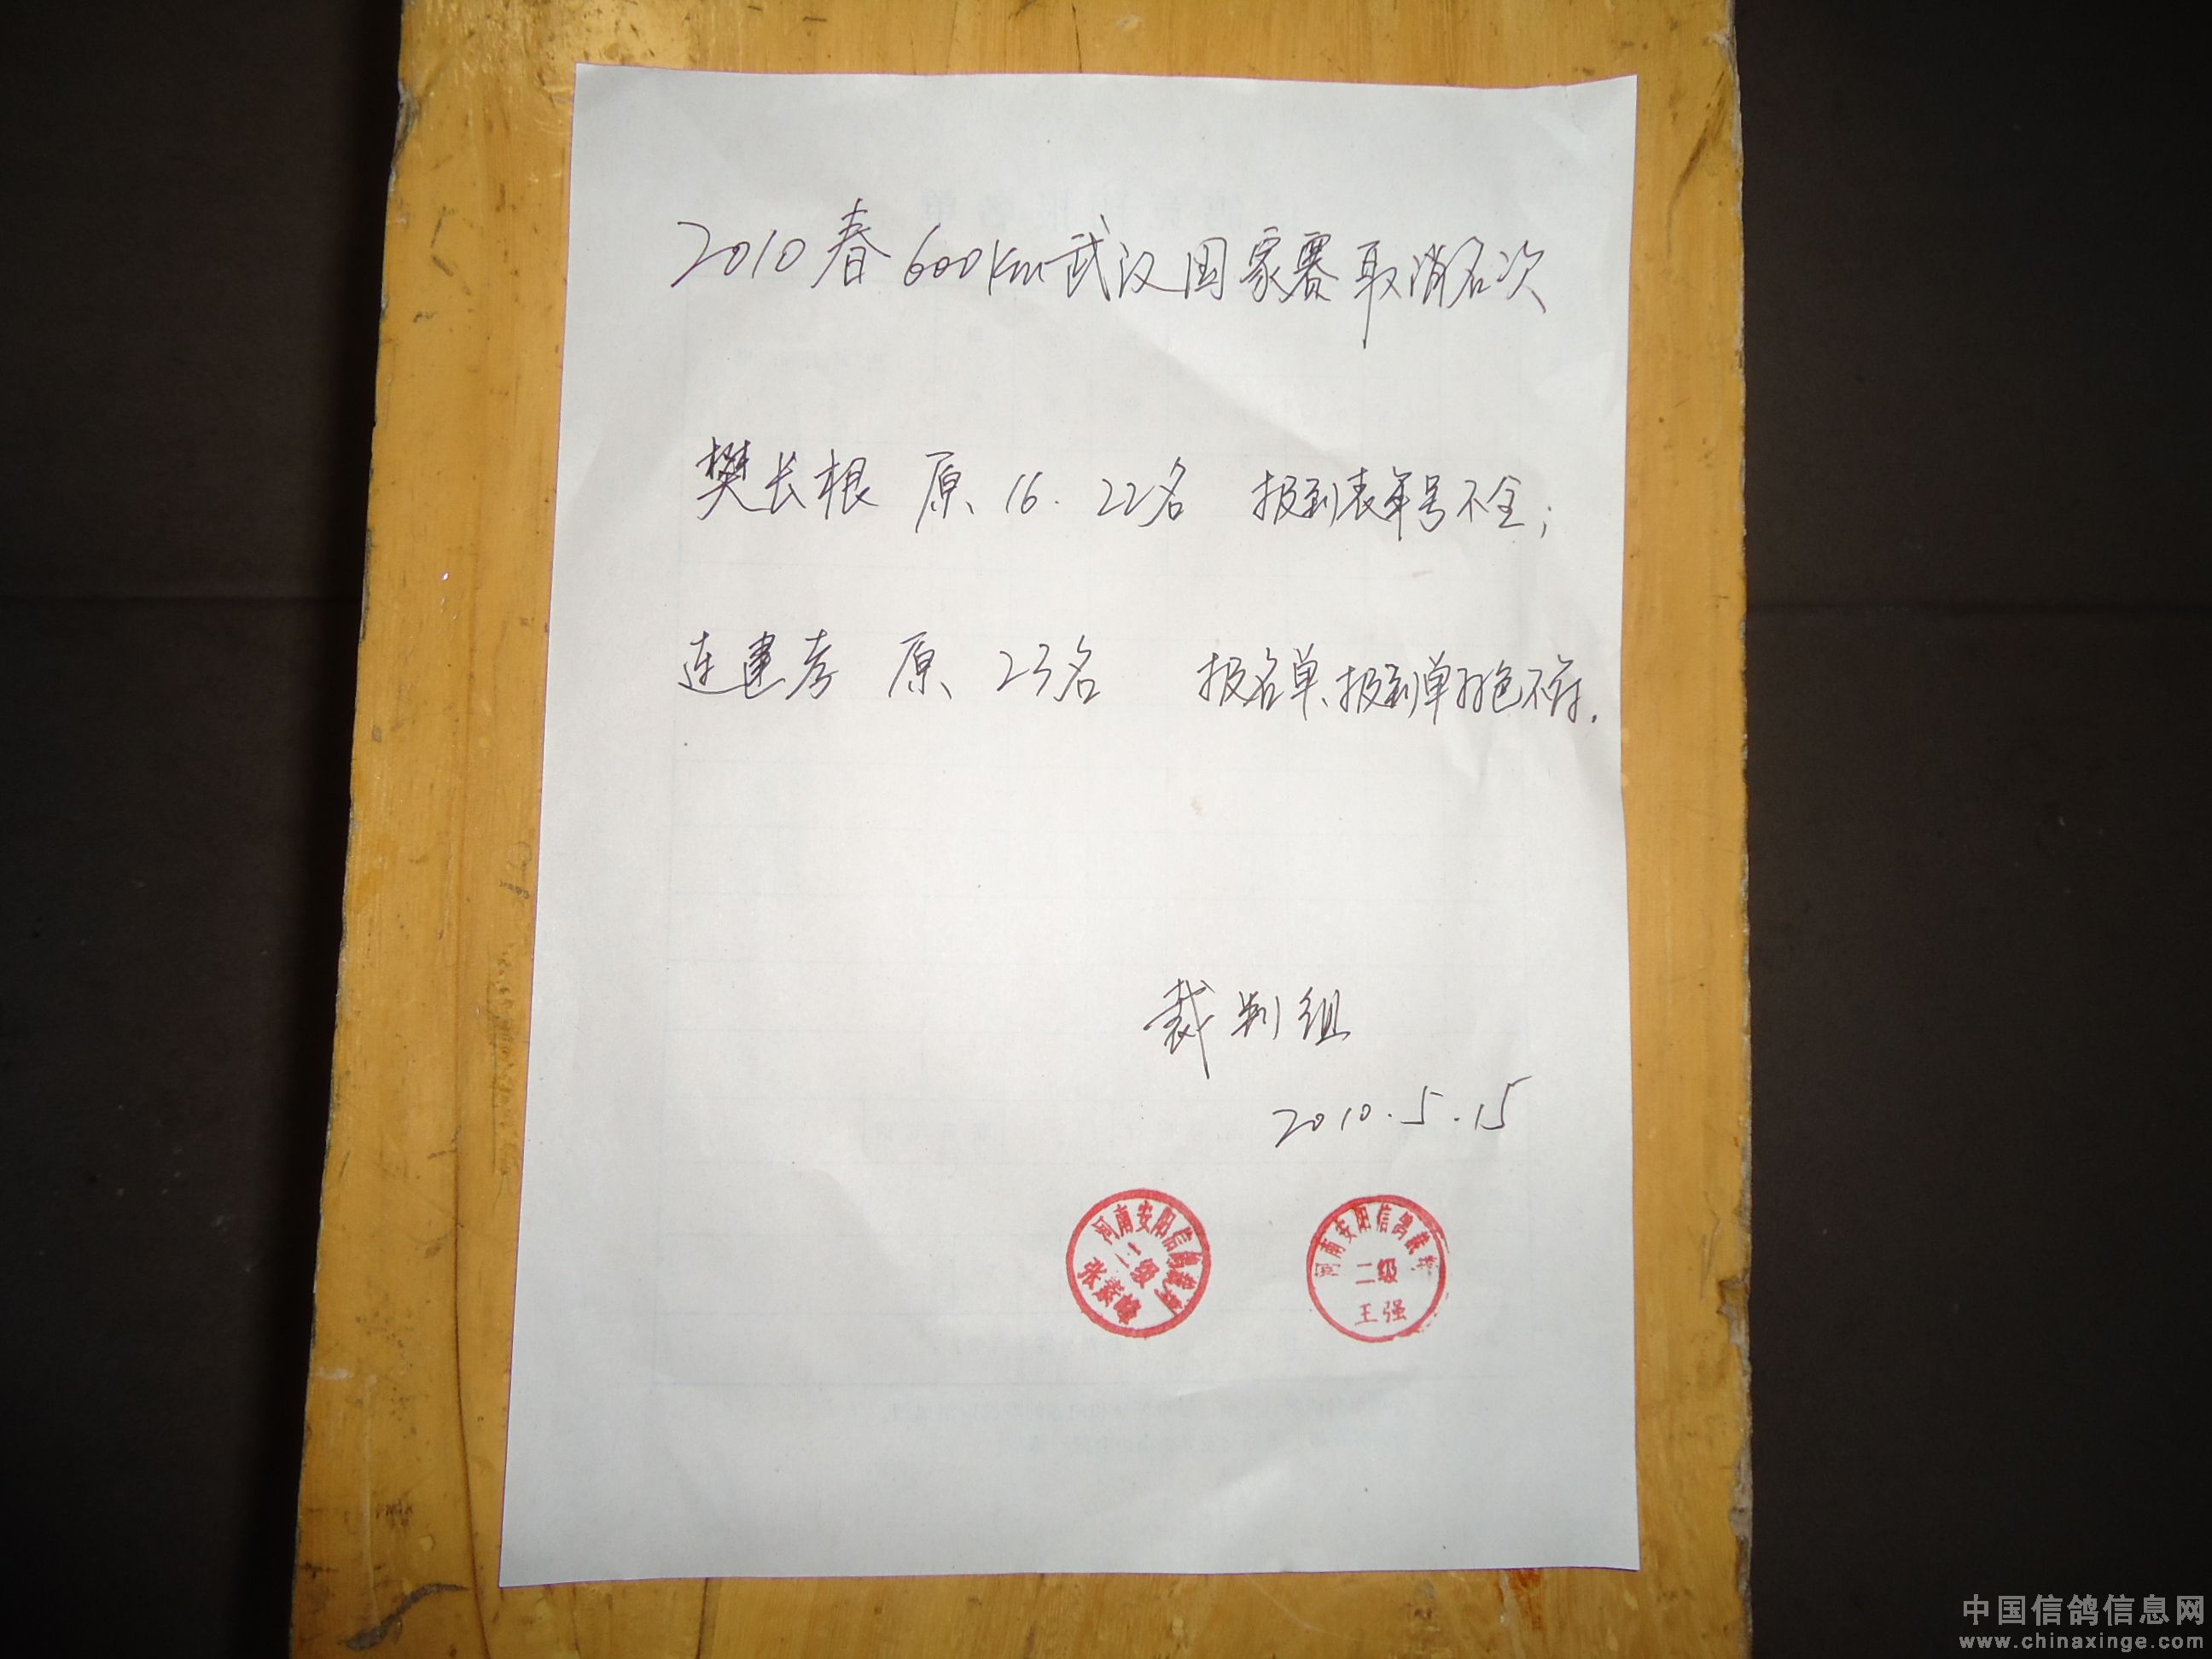 2010春600km武汉国家赛取消名次
樊长根 原、16. 22名 报到表单号不全;
连建考 原、23名 报名单、报到单羽色不符.
裁判组
2010.5.15
河南安阳信鸽裁判
二级
张
河南安阳信鸽裁判
二级
王强
中国信鸽信息网
www.chinaxinge.com